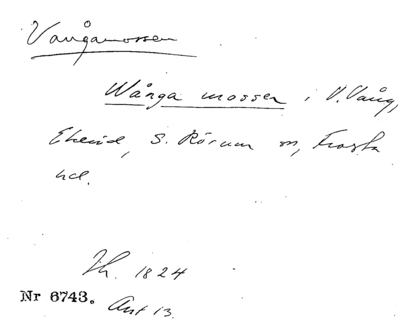 Vångamossen
Wånga mossen i V. Vång,
S. Rörum sn, Frosta
hd.
Th. 1824
Nr 6743. Akt 13.